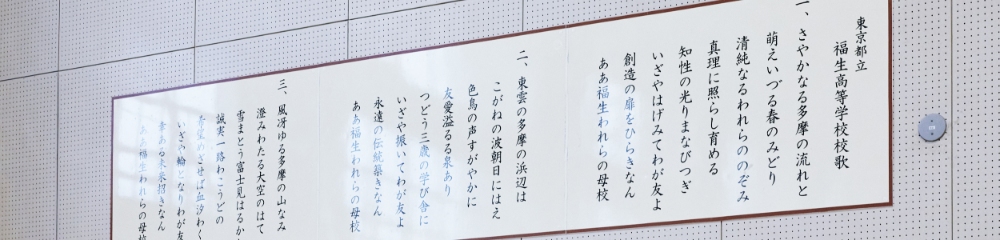 東京都立
福生高等学校校歌
一、さやかなる多摩の流れと
萌えいづる春のみどり
清純なるわれらののぞみ
真理に照らし育める
知性の光りまなびつぎ
いざやはげみてわが友よ
創造の扉をひらきなん
ああ福生われらの母校
二、東雲の多摩の浜辺は
こがねの波朝日にはえ
色鳥の声すがやかに
友愛溢るる泉あり
つどう三歳の学び舎に
いざや振いてわが友よ
永遠の伝統築きなん
ああ福生われらの母校
三、風冴ゆる多摩の山なみ
澄みわたる大空のはて
雪まとう富士見はるか
誠実一路わこうどの
希望めざせば血汐わく
いざや輪となりわが友
幸ある未来招きなん
ああ福生われらの母校